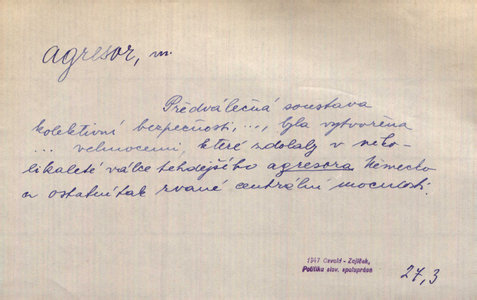 agresor, m.
Předválečná soustava
kolektivní bezpečnosti, ..., byla vytvořena
... velmocemi, které zdolaly v neko-
likaleté válce tehdejšího agresora Německo
a ostatní tak zvané centrální mocnosti.
1947 Osvald - Zajíček,
Politika slov. spolupráce
27,3